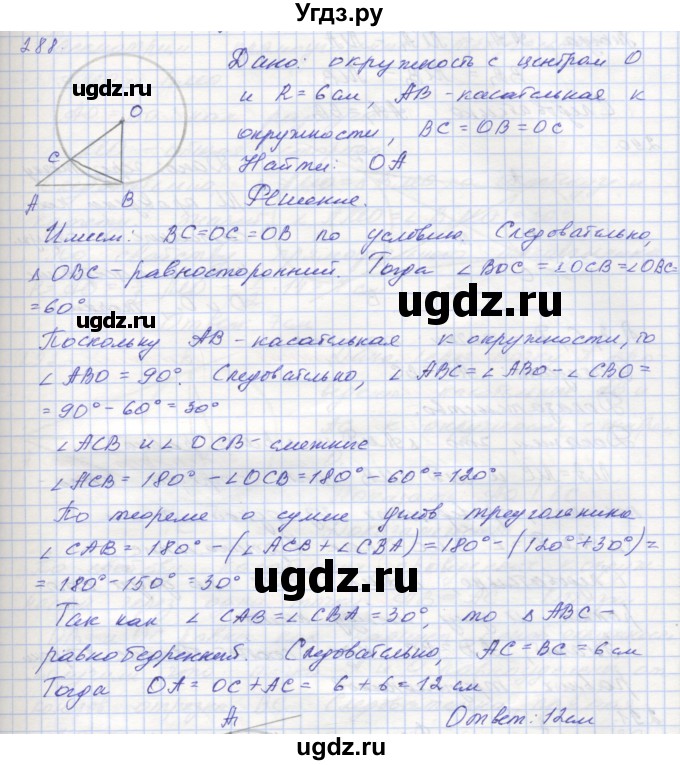 Угдз.ру
288.
Дано: окружность с центром O
и R = 6 см, AB - касательная к
окружности, BC = OB = OC
Найти: OA
Решение.
ugdz.ru
O
C
A
B
Имеем: BC=OC=OB по условию. Следовательно,
△ OBC - равносторонний. Тогда ∠BOC = ∠OCB=∠OBC=
=60°
ugdz.ru
ugdz.ru
Поскольку AB - касательная к окружности, то
∠ ABO = 90°. Следовательно, ∠ ABC = ∠ ABO - ∠ CBO =
= 90° - 60° = 30°
∠ACB и ∠ OCB - смежные
∠ACB = 180° - ∠OCB = 180° - 60° = 120°
По теореме о сумме углов треугольника
∠ CAB = 180° - (∠ ACB + ∠ CBA) = 180° - (120° + 30°) =
= 180° - 150° = 30°
ugdz.ru
ugdz.ru
Так как ∠ CAB = ∠ CBA = 30°, то △ ABC -
равнобедренный. Следовательно, AC = BC = 6 см
Тогда OA = OC + AC = 6 + 6 = 12 см
Ответ: 12 см
ugdz.ru